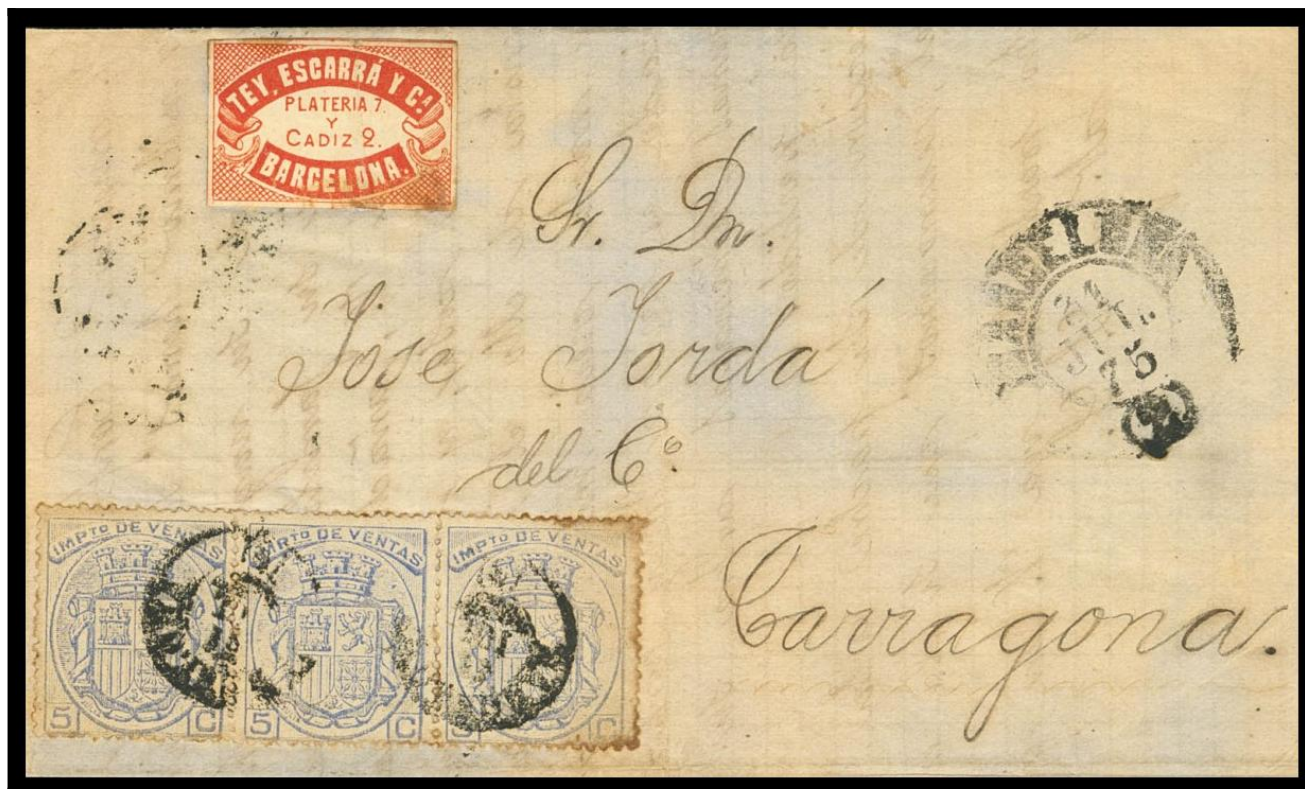 TEY, ESCARRÁ Y Cª
PLATERIA 7.
Y
CADIZ 2.
BARCELONA.
Sr. Dn.
José Jordá
del Cº.
Tarragona.
75
IMPTO DE VENTAS
5 C
IMPTO DE VENTAS
5 C
IMPTO DE VENTAS
5 C